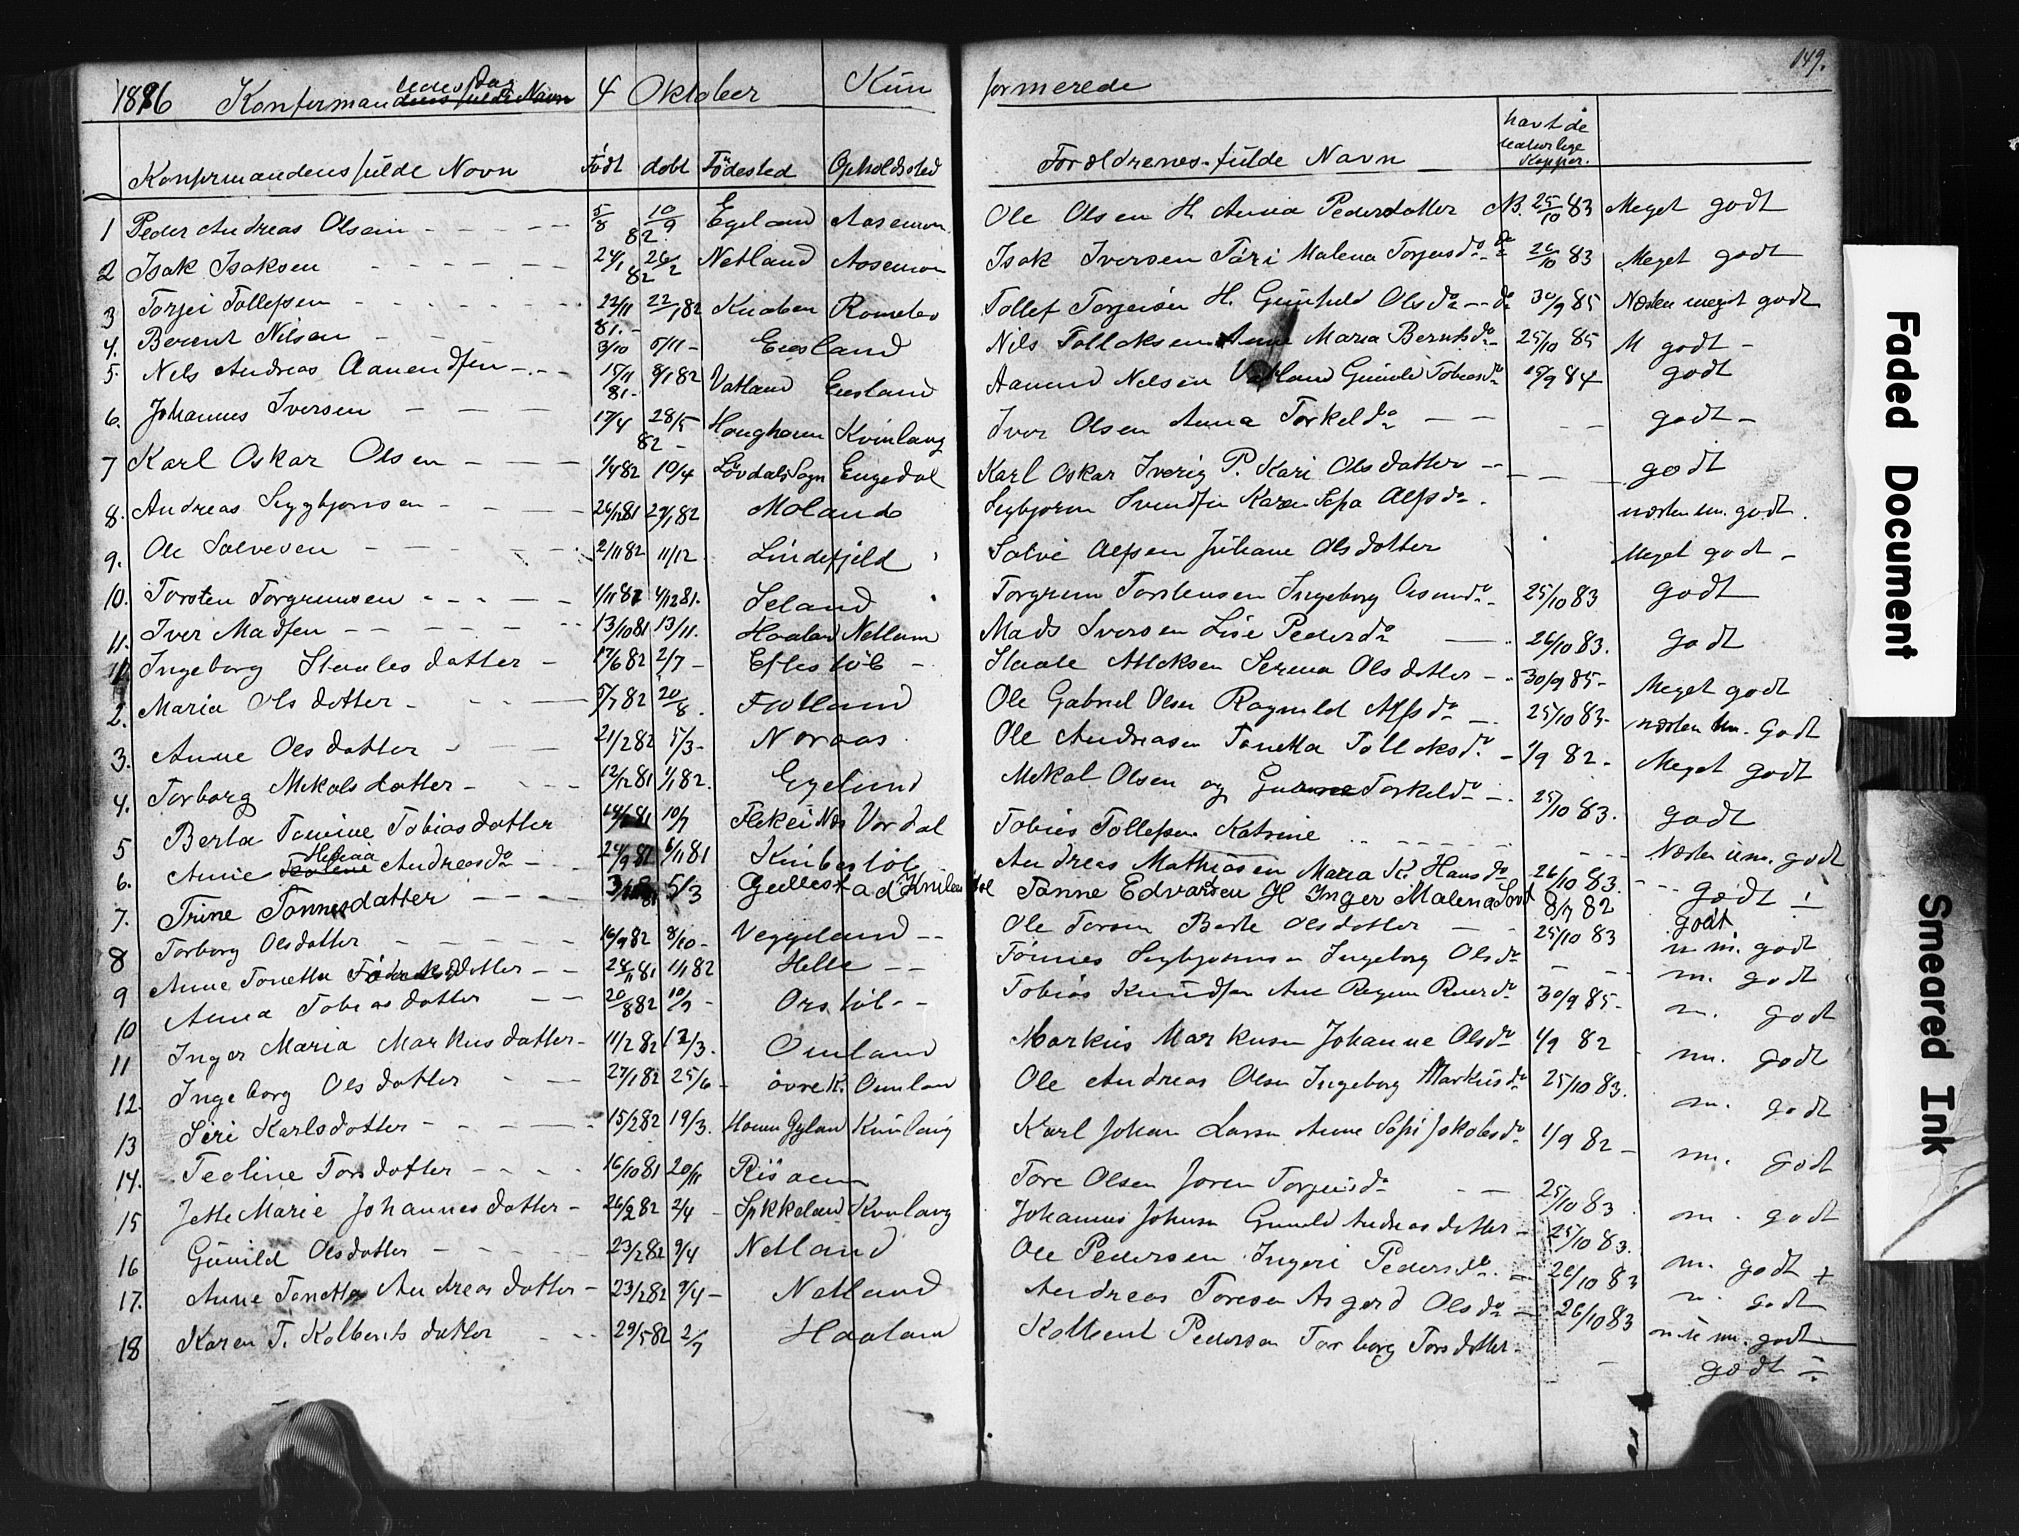 149.
1896 Konfirman 4 Oktober Kun firmerede
Konfirmandens fulde Navn Født døbt Födested Opholdssted Forældrenes fulde Navn havt de naturlige Kopper.
1 Peder Andreas Olsen 5/8 82 10/9 Egeland Aasemon Ole Olsen H. Anna Pedersdatter N. 25/10 83 Meget godt
2 Isak Isaksen 24/1 82 26/2 Netland Aasemon Isak Iversen Töri Malena Torjusdo do 26/10 83 Meget godt
3 Torjei Tollefsen 22/11 81. 22/1 82 Knaben Romelev Tollef Torjeisen H. Gunhild Olsdo do 30/9 85 Næsten meget godt
4. Berent Nilsen 3/10 5/11 Eiesland Nils Tollaksen Anne Maria Berntsdo 25/10 85 M godt
5. Nils Andreas Aanendsen 15/11 81 8/1 82 Vatland Eiesland Aanend Nilsen Vatland Gunild Tobiasdo 15/9 84 godt
6. Johannes Iversen 17/4 82 28/5 Houghomm Kvinlaug Iver Olsen Anna Torkeldo godt
7 Karl Oskar Olsen 1/4 82 10/4 Lövdals Sogn Engedal Karl Oskar Iverig P. Kari Olsdatter godt
8. Andreas Sigbjørnsen 26/12 81 29/1 82 Moland Sigbjørn Svendsen Karen Sofa Alfsdo næsten m. godt.
9. Ole Salvesen 2/11 82 11/12 Lindefjeld Salve Alfsen Juliane Olsdotter Meget godt
10. Torsten Torgrimsen 1/11 81 4/12 81. Seland Torgrim Torstensen Ingeborg Osmundo 25/10 83 godt
11. Iver Madsen 13/10 81 13/11. Haaland Netland Mads Iversen Lise Pedersdo 26/10 83. godt
1 Ingeborg Staalesdatter 17/6 82 2/7 Eftestöl Staale Atlaksen Serina Olsdotter 30/9 85 Meget godt
2. Maria Olsdotter 5/7 82 20/8. Fatland Ole Gabriel Olsen Ragnild Alfsdo 25/10 83 næsten m. Godt
3. Anne Olsdatter 21/2 82 5/3 Noraas Ole Andreasen Tonetta Tollaksdo 1/9 82 Meget godt
4. Torborg Mikalsdatter 12/12 81 1/1 82. Egeland Mikal Olsen og Torkeldo 25/10 83. godt
5 Berta Tomine Tobiasdatter 10/7 Flekei Nes Vordal Tobias Tollefsen Katrine Næsten m. godt
6. Anne Helena Andreasdo 24/9 81 6/11 81 Knibestöl Andreas Mathiasen Maria K. Hansdo 26/10 83. godt
7. Trine Tønnesdatter 5/3 Gullestad Knibestöl Tønne Edvardsen H Inger Malena 8/7 82 godt
8 Torborg Olsdatter 16/9 82 8/10 Veggeland Ole Torsen Berte Olsdotter 25/10 83 n m. godt
9 Anne Tonetta 28/11 81 1/1 82 Helle Tönnes Sigbjørnsen Ingeborg Olsdo m. godt
10 Anna Tobiasdatter 20/8 82 10/9 Orstöl Tobias Knudsen Ane Regine Reiersdo 30/9 85 m. godt
11 Inger Maria Markusdatter 11/2 82 12/3. Omland Markus Markusen Johanne Olsdo 1/9 82 m. godt
12. Ingeborg Olsdatter 27/1 82 25/6 øvre K. Omlan Ole Andreas Olsen Ingeborg Markusdo 25/10 83. m. godt
13 Siri Karlsdotter 15/2 82 19/3. Homm Gylan Kvinlaug Karl Johan Larsen Anne Sofi Jakobsdo 1/9 82 m. godt
14. Teoline Torsdatter 16/10 81 20/11 Risaen Tore Olsen Joren Torjusdo 25/10 83 m. godt
15 Jette Marie Johannesdatter 26/2 82 2/4 Spikkeland Kvinlaug Johannes Johnsen Gunild Andreasdatter 25/10 83. m. godt +
16 Gunild Olsdatter 23/2 82 9/4 Netland Ole Pedersen Ingeri Pedersdo 26/10 83 m godt
17. Anne Tonetta Andreasdotter 23/2 82 9/4 Netland Andreas Toresen Asgerd Olsdo 26/10 83 m. godt
18 Karen T. Kolbentsdatter 29/5 82 2/7 Haaland Kolbent Pedersen Torborg Torsdotter godt
Faded Document
Smeared Ink